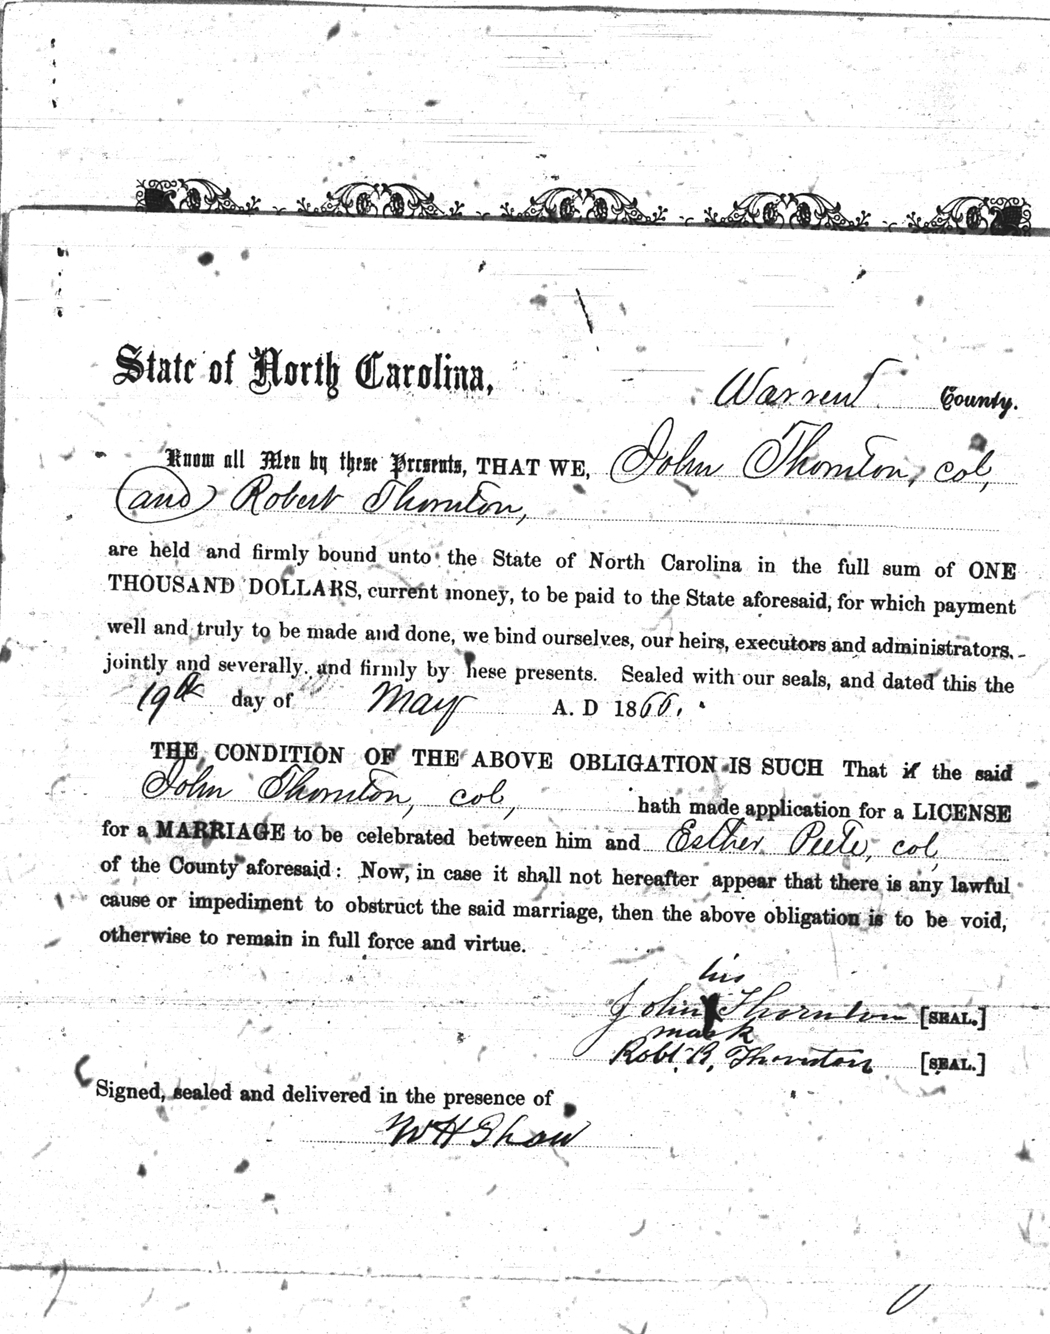 State of North Carolina, Warren County.
Know all Men by these Presents, THAT WE, John Thornton, col,
and Robert Thornton,
are held and firmly bound unto the State of North Carolina in the full sum of ONE
THOUSAND DOLLARS, current money, to be paid to the State aforesaid, for which payment
well and truly to be made and done, we bind ourselves, our heirs, executors and administrators,
jointly and severally, and firmly by hese presents. Sealed with our seals, and dated this the
19th day of May A. D 1866.
THE CONDITION OF THE ABOVE OBLIGATION IS SUCH That if the said
John Thornton, col, hath made application for a LICENSE
for a MARRIAGE to be celebrated between him and Esther Peete, col,
of the County aforesaid: Now, in case it shall not hereafter appear that there is any lawful
cause or impediment to obstruct the said marriage, then the above obligation is to be void,
otherwise to remain in full force and virtue.
his
John X Thornton [SEAL.]
mark
Robt. R, Thornton [SEAL.]
Signed, sealed and delivered in the presence of
W H Shaw